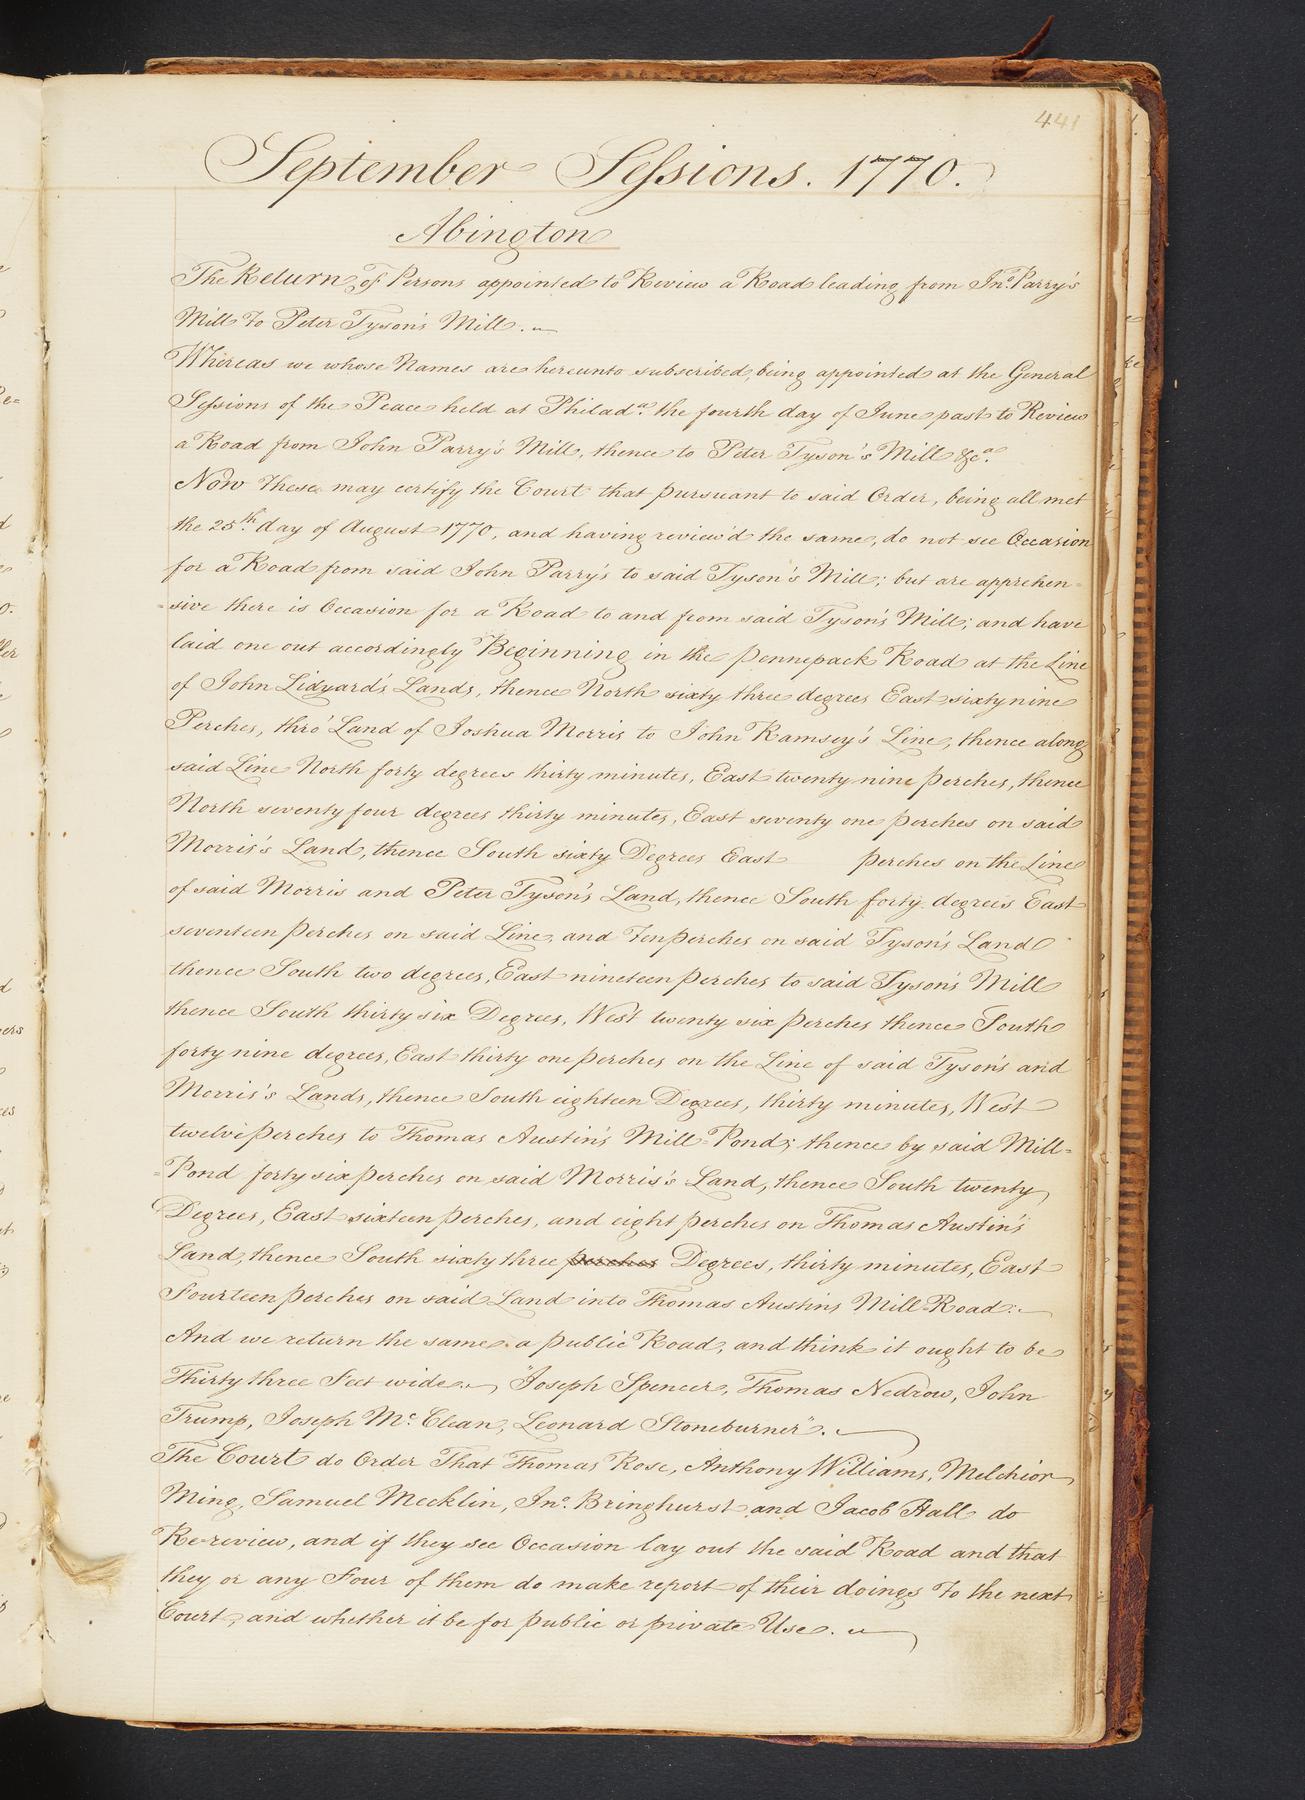 441
September Sessions. 1770.
Abington
The Return of Persons appointed to Review a Road leading from Jno. Parry's
Mill to Peter Tyson's Mill.
Whereas we whose Names are hereunto subscribed, being appointed at the General
Sessions of the Peace held at Philada. the fourth day of June past to Review
a Road from John Parry's Mill, thence to Peter Tyson's Mill &ca.
Now These may certify the Court that pursuant to said Order, being all met
the 25th. day of August 1770, and having review'd the same, do not see Occasion
for a Road from said John Parry's to said Tyson's Mill; but are apprehen=
=sive there is Occasion for a Road to and from said Tyson's Mill; and have
laid one out accordingly Beginning in the Pennepack Road at the Line
of John Lidyard's Lands, thence North sixty three degrees East sixty nine
Perches, thro' Land of Joshua Morris to John Ramsey's Line, thence along
said Line North forty degrees thirty minutes, East twenty nine perches, thence
North seventy four degrees thirty minutes, East seventy one perches on said
Morris's Land, thence South sixty Degrees East perches on the Line
of said Morris and Peter Tyson's Land, thence South forty degrees East
seventeen perches on said Line, and Ten perches on said Tyson's Land
thence South two degrees, East nineteen perches to said Tyson's Mill
thence South thirty six Degrees, West twenty six perches thence South
forty nine degrees, East thirty one perches on the Line of said Tyson's and
Morris's Lands, thence South eighteen Degrees, thirty minutes, West
twelve perches to Thomas Austin's Mill=Pond; thence by said Mill=
=Pond forty six perches on said Morris's Land, thence South twenty
Degrees, East sixteen perches, and eight perches on Thomas Austin's
Land, thence South sixty three perches Degrees, thirty minutes, East
Fourteen perches on said Land into Thomas Austins Mill-Road:
And we return the same a public Road, and think it ought to be
Thirty three Feet wide. "Joseph Spencer, Thomas Nedrow, John
Trump, Joseph Mc. Clean, Leonard Stoneburner".
The Court do Order That Thomas Rose, Anthony Williams, Melchior
Ming, Samuel Mecklin, Jno. Bringhurst and Jacob Hall do
Re-review, and if they see Occasion lay out the said Road and that
they or any Four of them do make report of their doings to the next
Court, and whether it be for public or private Use.